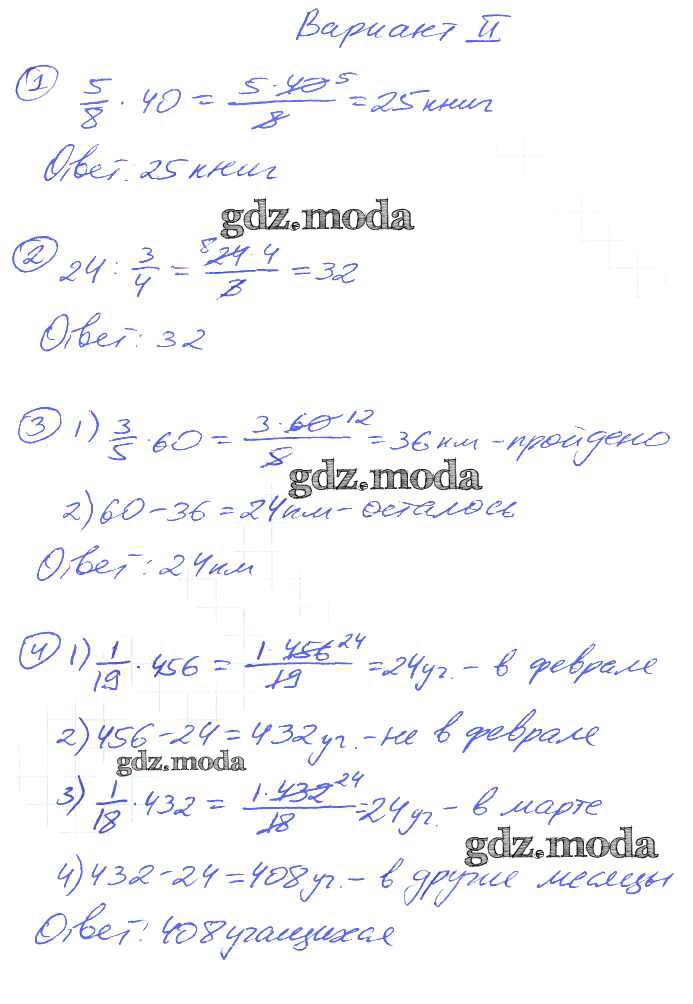 Вариант II
① 5/8 · 40 = 5·40 5/8 = 25 книг
Ответ: 25 книг
gdz.moda
② 24 : 3/4 = 8 24·4/3 = 32
Ответ: 32
③ 1) 3/5 · 60 = 3·60 12/5 = 36 км - пройдено
gdz.moda
2) 60 - 36 = 24 км - осталось
Ответ: 24 км
④ 1) 1/19 · 456 = 1·456 24/19 = 24 уч. - в феврале
2) 456 - 24 = 432 уч. - не в феврале
gdz.moda
3) 1/18 · 432 = 1·432 24/18 = 24 уч. - в марте
gdz.moda
4) 432 - 24 = 408 уч. - в другие месяцы
Ответ: 408 учащихся